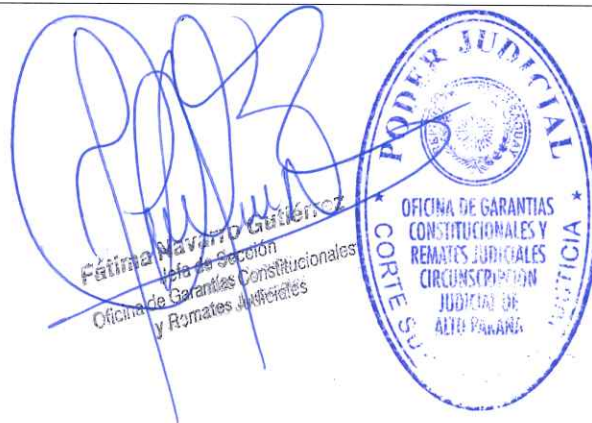 Fátima Navarro Gutiérrez
Jefa de Sección
Oficina de Garantías Constitucionales
y Remates Judiciales
PODER JUDICIAL
OFICINA DE GARANTIAS
CONSTITUCIONALES Y
REMATES JUDICIALES
CIRCUNSCRIPCION
JUDICIAL DE
ALTO PARANA
CORTE SU
JUSTICIA